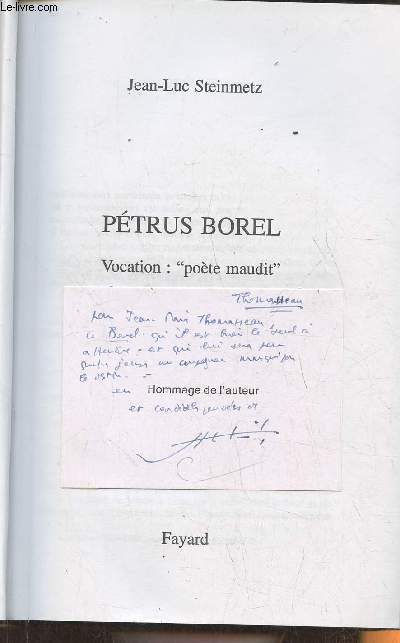 © Le-livre.com
Jean-Luc Steinmetz
PÉTRUS BOREL
Vocation : "poète maudit"
Thomasseau
pour Jean Marie Thomasseau
ce Borel qu'il est bien le seul à
et qui lui sera
un compagnon
en Hommage de l'auteur
et cordiales pensées
Fayard